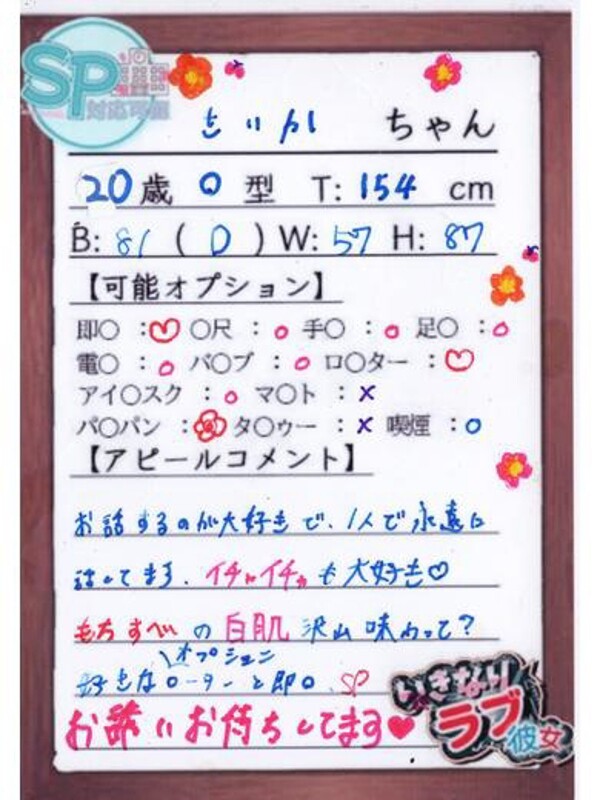 SP
対応可能
せいか ちゃん
20歳 O型 T: 154 cm
B: 81 (D) W: 57 H: 87
【可能オプション】
即〇 :♡ 〇尺 :○ 手〇 :○ 足〇 :○
電〇 :○ バ〇ブ :○ ロ〇ター :♡
アイ〇スク :○ マ〇ト :×
パ〇パン : タ〇ゥー :× 喫煙 :○
【アピールコメント】
お話するのが大好きで、1人で永遠に
話してます、イチャイチャも大好き♡
もちすべの白肌沢山味わって?
オプション
好きなローターと即〇 SP
お誘いお待ちしてます♥
いきなり
ラブ彼女